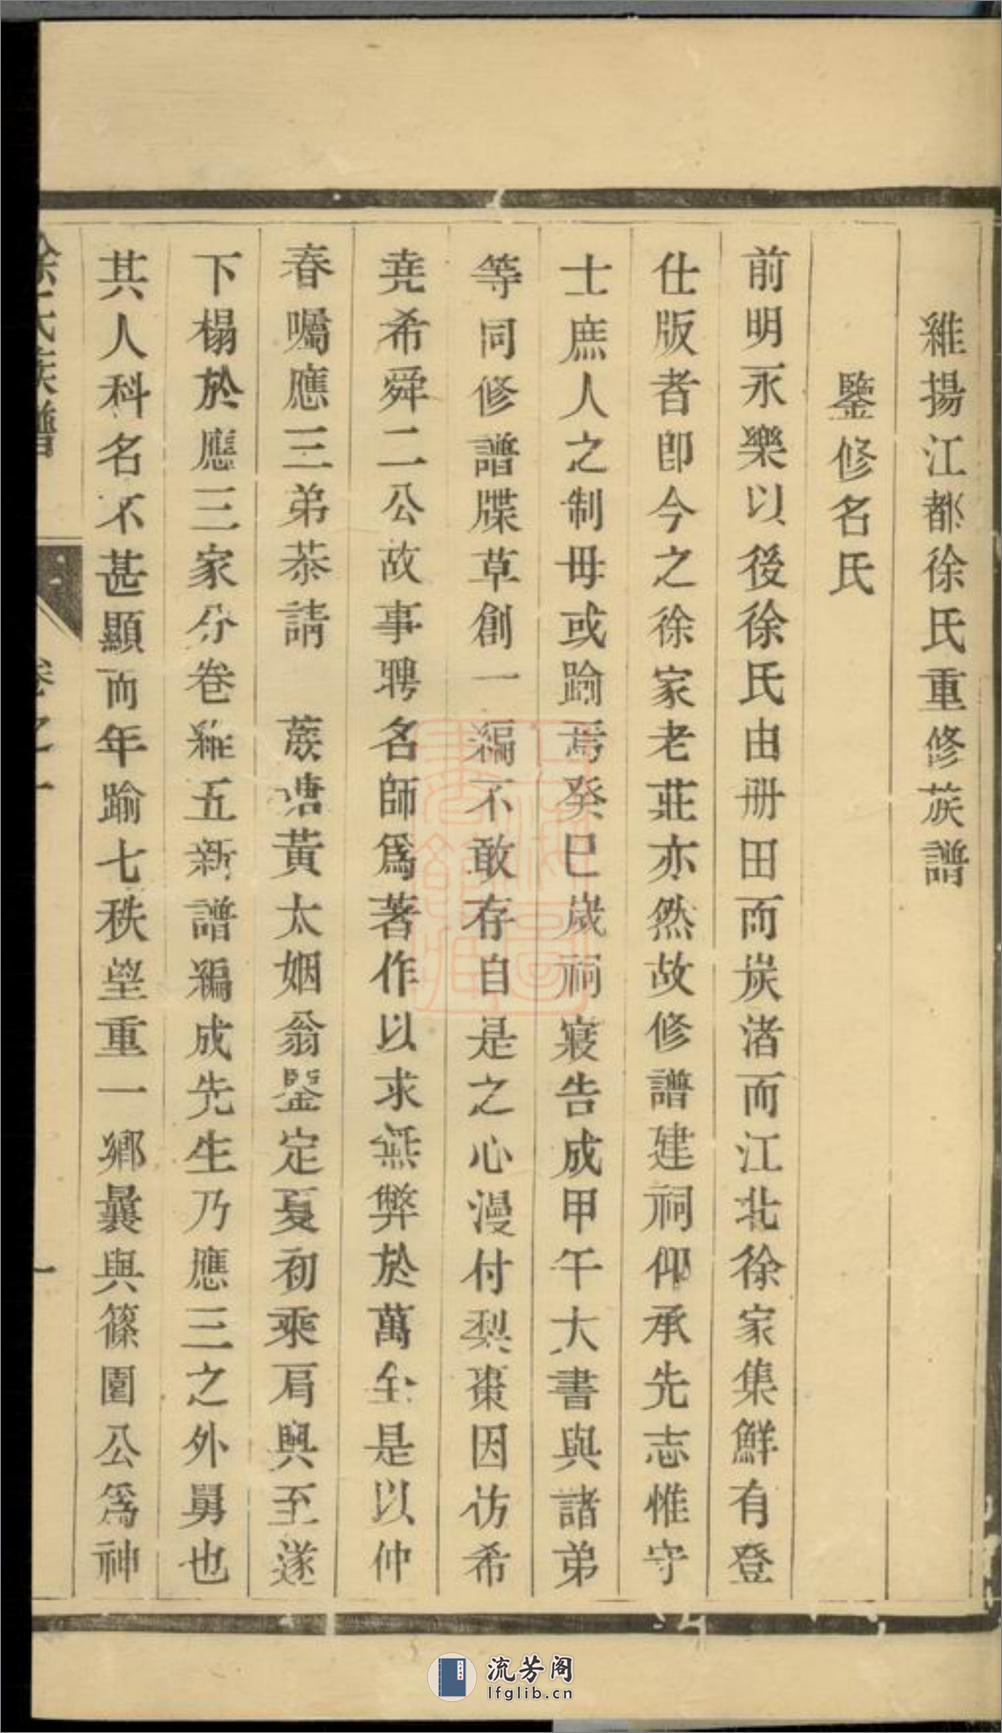 維揚江都徐氏重修族譜
鑒修名氏
前明永樂以後徐氏由冊田而炭渚而江北徐家集鮮有登
仕版者卽今之徐家老莊亦然故修譜建祠仰承先志惟守
士庶人之制毋或踰焉癸巳歲祠寢告成甲午大書與諸弟
等同修譜牒草創一編不敢存自是之心漫付梨棗因仿希
堯希舜二公故事聘名師爲著作以求無弊於萬全是以仲
春囑應三弟恭請 蔟塘黃太姻翁鑒定夏初乘肩輿至遂
下榻於應三家分卷維五新譜編成先生乃應三之外舅也
其人科名不甚顯而年踰七秩望重一鄉曩與篠園公爲神
徐氏族譜 卷之一 一
流芳阁
lfglib.cn